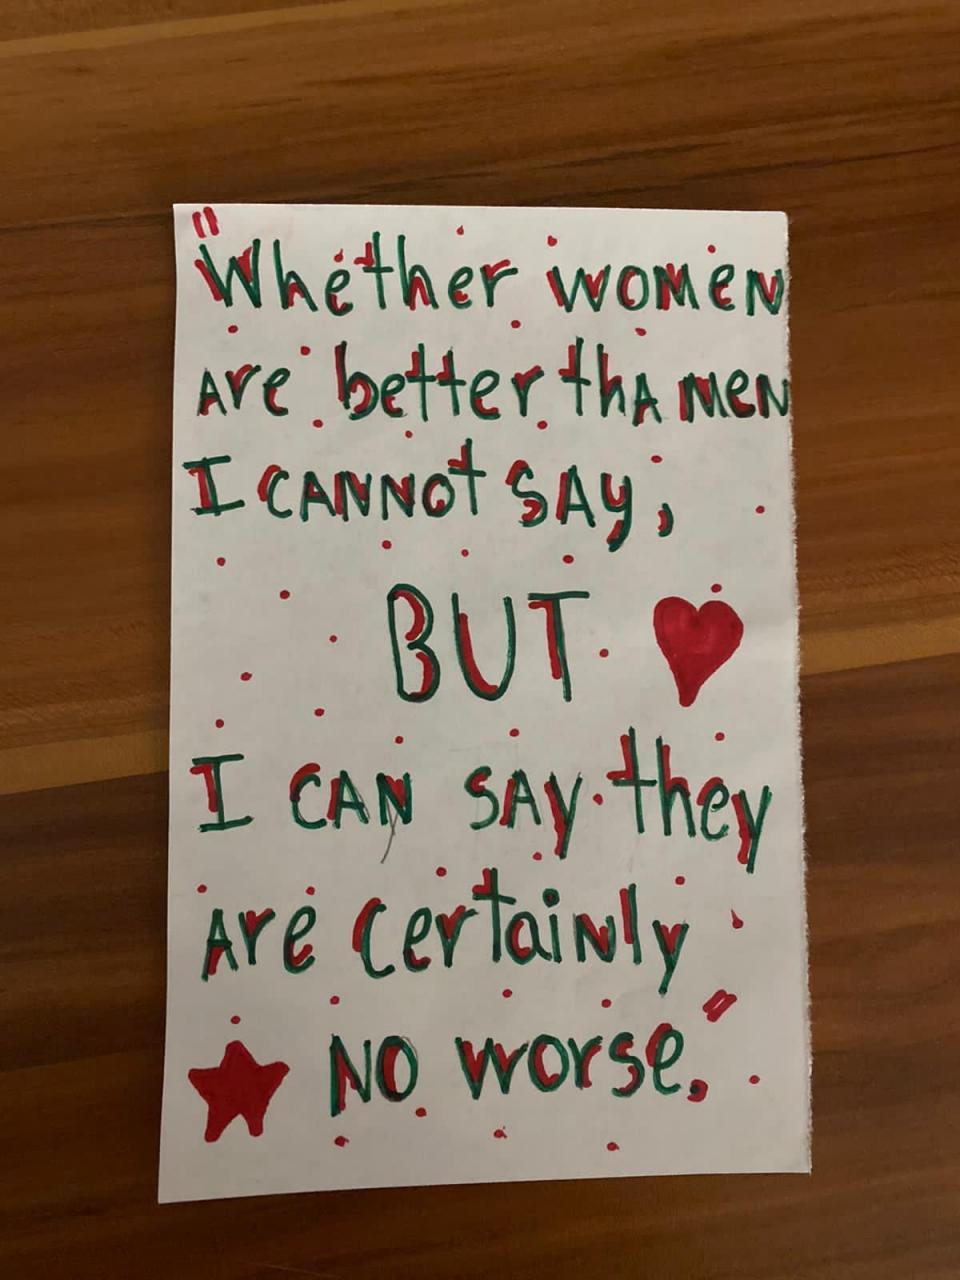 "Whether women
Are better thA men
I CANNOt SAy,
BUT
I CAN SAy they
Are certainly
NO worse."